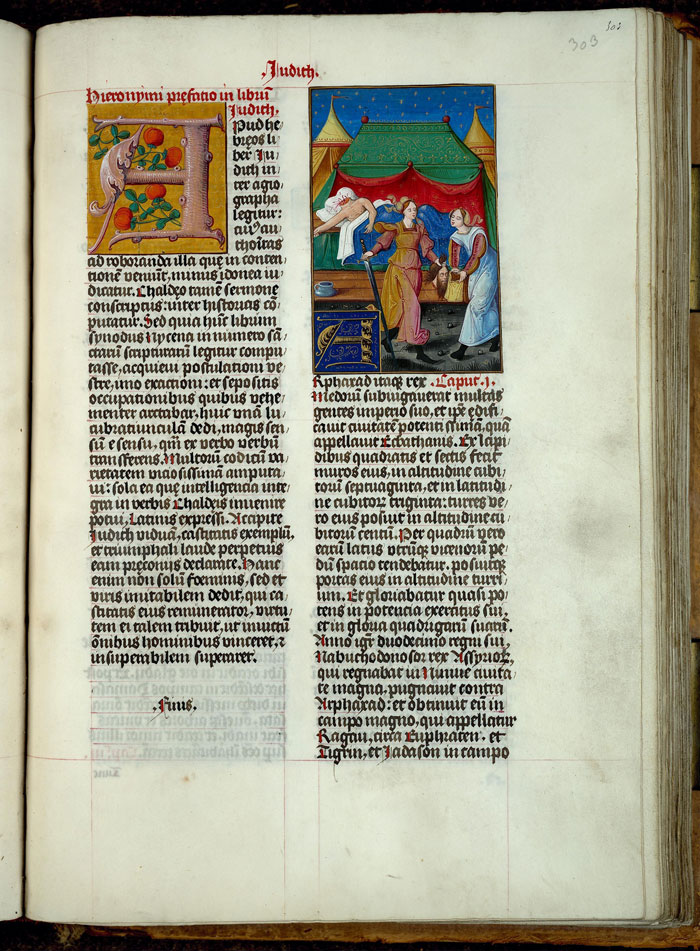 303
303
.Judith.
Hieronymi pręfatio in librū
Judith.
APud he/
bręos li/
ber Ju/
dith in/
ter agio/
grapha
legitur:
cuiꝰ au/
thoritas
ad roboranda illa quę in conten/
tionē veniūt, minus idonea iu/
dicatur. Chaldęo tamē sermone
conscriptus: inter historias cō/
putatur. Sed quia hūc librum
synodus Nycena in numero sā/
ctarū scripturarū legitur compu/
tasse, acquieui postulationi ve/
stre, imo exactioni: et sepositis
occupationibus quibus vehe/
menter arctabar, huic vnā lu/
cubratiunculā dedi, magis sen/
sū e sensu, qm̄ ex verbo verbū
transferens. Multorū codicū va/
rietatem viciosissimā amputa/
ui: sola ea quę intelligentia inte/
gra in verbis Chaldęis inuenire
potui, Latinis expressi. Accipite
Judith viduā, castitatis exemplū,
et triumphali laude perpetuis
eam pręconijs declarate. Hanc
enim non solū foeminis, sed et
viris imitabilem dedit, qui ca/
stitatis eius remunerator, virtu/
tem ei talem tribuit, ut inuictū
ōnibus hominibus vinceret, ⁊
insuperabilem superaret.
.Finis.
ARphaxad itaqꝫ rex .Caput .I.
Medorum subiugauerat multas
gentes imperio suo, et ipe ędifi/
cauit ciuitatē potentissimā, quā
appellauit Ecbathanis. Ex lapi/
dibus quadratis et sectis fecit
muros eius, in altitudine cubi/
torū septuaginta, et in latitudi/
ne cubitorꝝ triginta: turres ve/
ro eius posuit in altitudine cu/
bitorū centū. Per quadrū vero
earū latus vtrūqꝫ vicenorū pe/
dū spacio tendebatur. posuitqꝫ
portas eius in altitudine turri/
um. Et gloriabatur quasi po/
tens in potencia exercitus sui,
et in gloria quadrigarū suarū.
Anno igit̄ duodecimo regni sui,
Nabuchodonosor rex Assyriorꝝ,
qui regnabat in Niniue ciuita/
te magna, pugnauit contra
Arphaxad: et obtinuit eū in
campo magno, qui appellatur
Ragau, circa Euphraten, et
Tigrin, et Jadason in campo